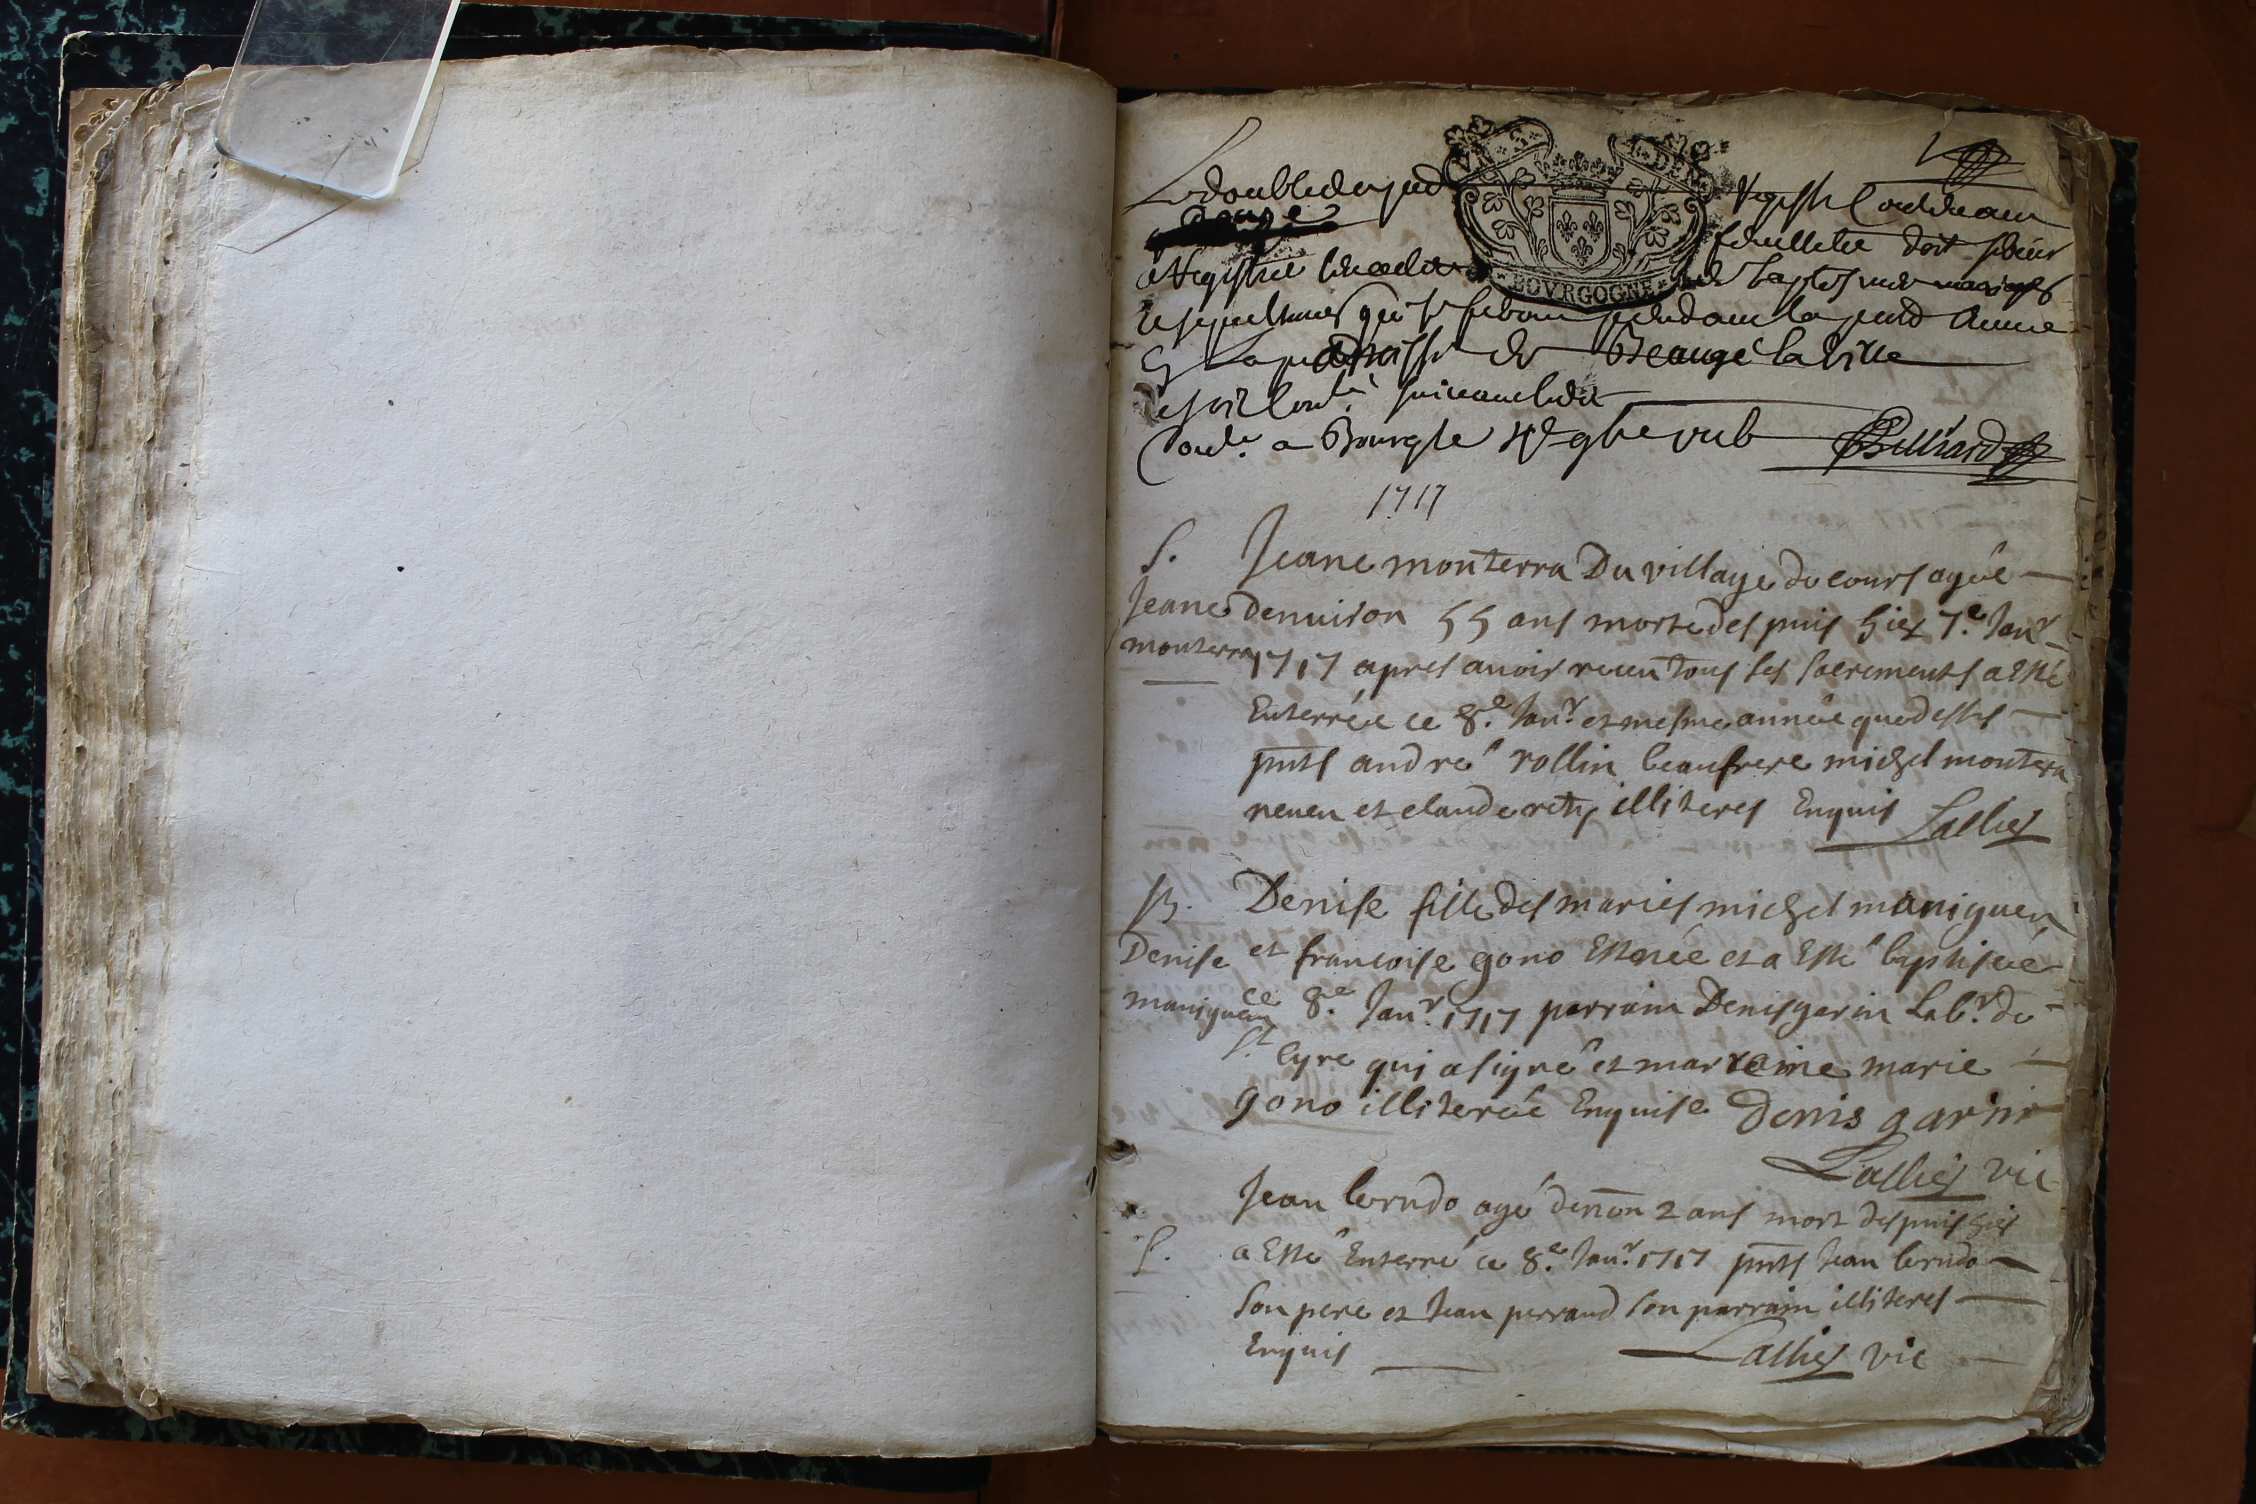 Le double du pnt Registre Contenant
feuillets doit servir
a Registrer les actes de baptesmes mariages
et sepultures qui se feront pendant la pnte année
En La parroisse de Beaugé la ville
BOVRGOGNE
a Bourg le
Billiard
1717
S. Jeane monterra Du village de cours agée
Jeane Denuiron 55 ans morte despuis hier 7.e Janr
monterra 1717 apres avoir receu tous ses sacrements a Esté
Enterrée ce 8.e Janr et mesme année que dessus
pnts andré rollin beaufrere michel montera
neveu et claude illiteres Enquis Lallier
B. Denise fille des mariés michel maniguen
Denise et francoise gono Est née et a Esté baptisée
maniguen ce 8.e Janr 1717 parrain Denis garin Labr. de
St Cyre qui a signé et marraine marie
gono illiterée Enquise Denis garin
Lallier vic
Jean berudo agé denon 2 ans mort despuis hier
S. a Esté Enterré ce 8.e Janr 1717 pnts Jean berudo
Son pere et Jean perraud son parrain illiteres
Enquis Lallier vic